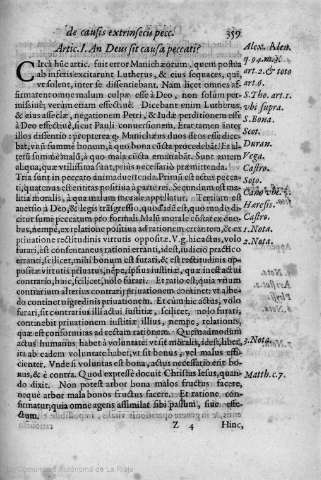 de causis extrinsecis pecc. 359
Artic. I. An Deus sit causa peccati?
CIrcà húc artic. fuit error Manichæorum, quem postea
ab infects excitarunt Lutherus, & eius sequaces, qui,
vt solent, inter se dissentiebant. Nam licet omnes af-
firmarent omne malum culpæ esse à Deo, non solum per-
missiuè, verùm etiam effectiuè: Dicebant enim Lutherus,
& eius asseclæ, negationem Petri, & Iudæ perditionem esse
à Deo effectiuè, sicut Pauli conuersionem, Erat tamen inter
illos dissentio: præterquā Manichæus duos deos esse dice-
bat, vnū summè bonum, à quo bona cūcta procedebāt: & al-
terū summè malū, à quo mala cūcta emanabāt. Sunt autem
aliqua, quæ vtilissima sunt, pènius necessariò præmittenda.
Tria sunt in peccato animaduertenda. Primū est actus pecca-
ti, quatenus est entitas positiua à parte rei. Secundum est ma-
litia moralis, à qua malum morale appellatur. Tertium est
auersio à Deo, & legis trāsgressio
dicit sumè peccatum pro formali. Malū morale cōstat ex duo-
bus, nempè, ex relatione positiua ad rationem errantem, & ex
priuatione rectitudinis virtutis oppositæ. V. g. hic actus, volo
furari, est consentaneus rationi erranti, idest, iudicio practico
erranti, scilicet, mihi bonum est furari, & est rectitudinis op-
positæ virtutis priuatus, nēpè, ipsius iustitiæ, quæ inest actui
contrario, huic, scilicet, nolo furari. Et ratio est, quia vnum
contrarium alterius contrarij priuationem continet: vt albe-
do continet nigredinis priuationem. Et cùm hic actus, volo
furari, sit contrarius illi actui iustitiæ, scilicet, nolo furari,
continebit priuationem iustitiæ illius, nempe, relationis,
quæ est conformitas ad rectam rationem. Quemadmodum
actus humanus habet à voluntate vt sit moralis, idest, liber,
ita ab eadem voluntate habet, vt sit bonus, vel malus effi-
cienter. Vnde si voluntas est bona, actus necessariò erit bo-
nus, & è contra. Quod expressè docuit Christus Iesus, quan-
do dixit. Non potest arbor bona malos fructus facere,
neque arbor mala bonos fructus facere. Et ratione con-
firmatur, quia omne agens assimilat sibi passum, siue effe-
ctum.
Z 4 Hinc,
Alex. Alen.
q. 94. m. 3.
art. 2. & toto
art. 6.
S. Tho. art. 1.
vbi supra.
S. Bona.
Scot.
Duran.
Vega.
Castro.
Soto.
Cano vbi s.
Hæresis.
Castro.
1. Nota.
2. Nota.
3. Nota.
Matth. c. 7.
Comunidad Autónoma de La Rioja